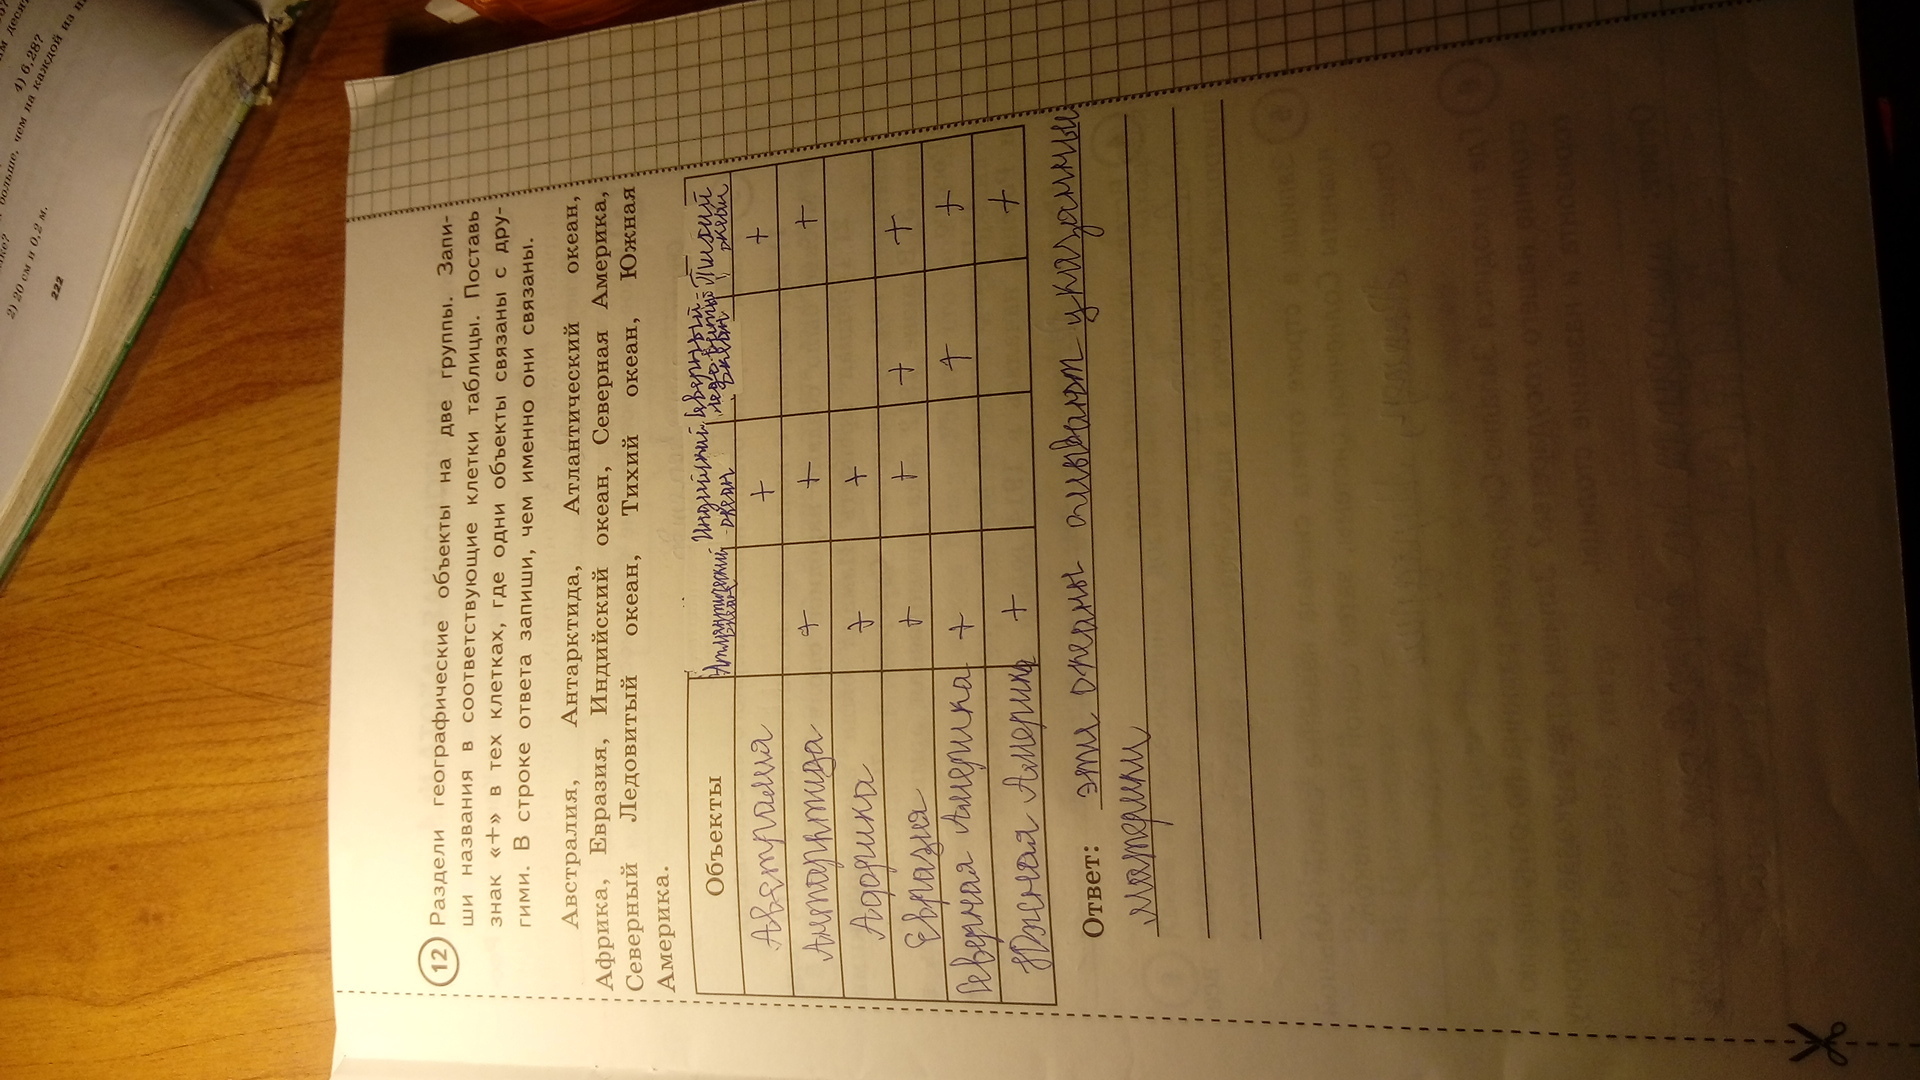 4) 6,28?
больше, чем на каждой из
2) 20 см и 0,2 м.
222
12 Раздели географические объекты на две группы. Запи-
ши названия в соответствующие клетки таблицы. Поставь
знак «+» в тех клетках, где одни объекты связаны с дру-
гими. В строке ответа запиши, чем именно они связаны.
Австралия, Антарктида, Атлантический океан,
Африка, Евразия, Индийский океан, Северная Америка,
Северный Ледовитый океан, Тихий океан, Южная
Америка.
Объекты Атлантический океан Индийский океан Северный ледовитый океан Тихий океан
Австралия + +
Антарктида + + +
Африка + +
Евразия + + + +
Северная Америка + + +
Южная Америка + +
Ответ: эти океаны омывают указанные
материки